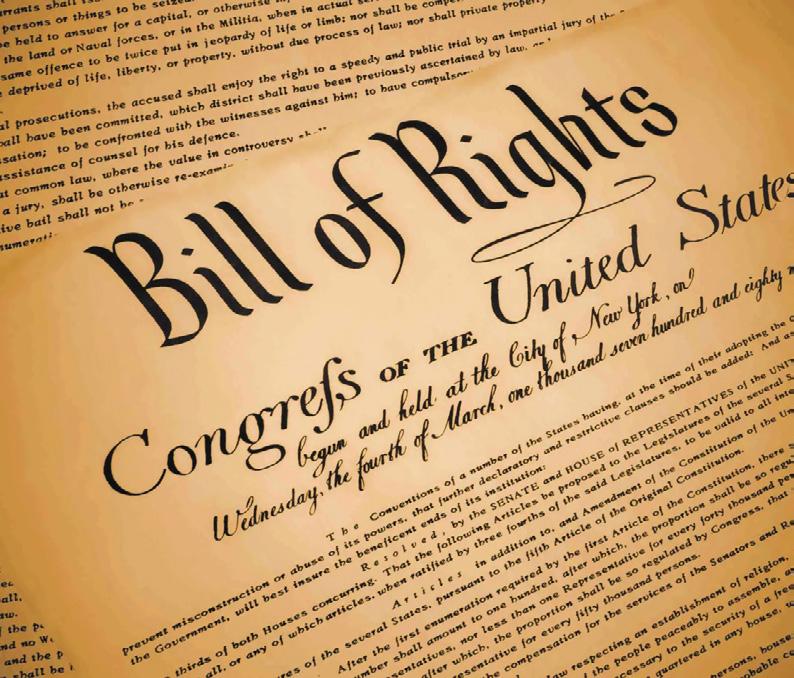 warrants shall
persons or things to be seized.
be held to answer for a capital, or otherwise
the land or Naval forces, or in the Militia, when in actual
same offence to be twice put in jeopardy of life or limb; nor shall be
deprived of life, liberty, or property, without due process of law; nor shall private property
prosecutions, the accused shall enjoy the right to a speedy and public trial by an impartial jury of the
shall have been committed, which district shall have been previously ascertained by law,
to be confronted with the witnesses against him; to have
assistance of counsel for his defence.
at common law, where the value in controversy
a jury, shall be otherwise
bail shall not be
Bill of Rights
Congreſs OF THE United States
begun and held at the City of New York, on
Wednesday, the fourth of March, one thousand seven hundred and eighty
The Conventions of a number of the States having, at the time of their adopting the
prevent misconstruction or abuse of its powers, that further declaratory and restrictive clauses should be added: And
the Government, will best insure the beneficent ends of its institution:
Resolved, by the SENATE and HOUSE of REPRESENTATIVES of the
thirds of both Houses concurring. That the following Articles be proposed to the Legislatures of the several
all, or any of which articles, when ratified by three fourths of the said Legislatures, to be valid to all
Articles in addition to, and Amendment of the Constitution of the
of the several States, pursuant to the fifth Article of the Original Constitution.
After the first enumeration required by the first Article of the Constitution, there
shall amount to one hundred, after which, the proportion shall be so
nor less than one Representative for every forty thousand
after which, the proportion shall be so regulated by Congress, that
for every fifty thousand persons.
compensation for the services of the Senators and
law respecting an establishment of religion,
the people peaceably to assemble, and
to the security of a free
quartered in any house,
persons,